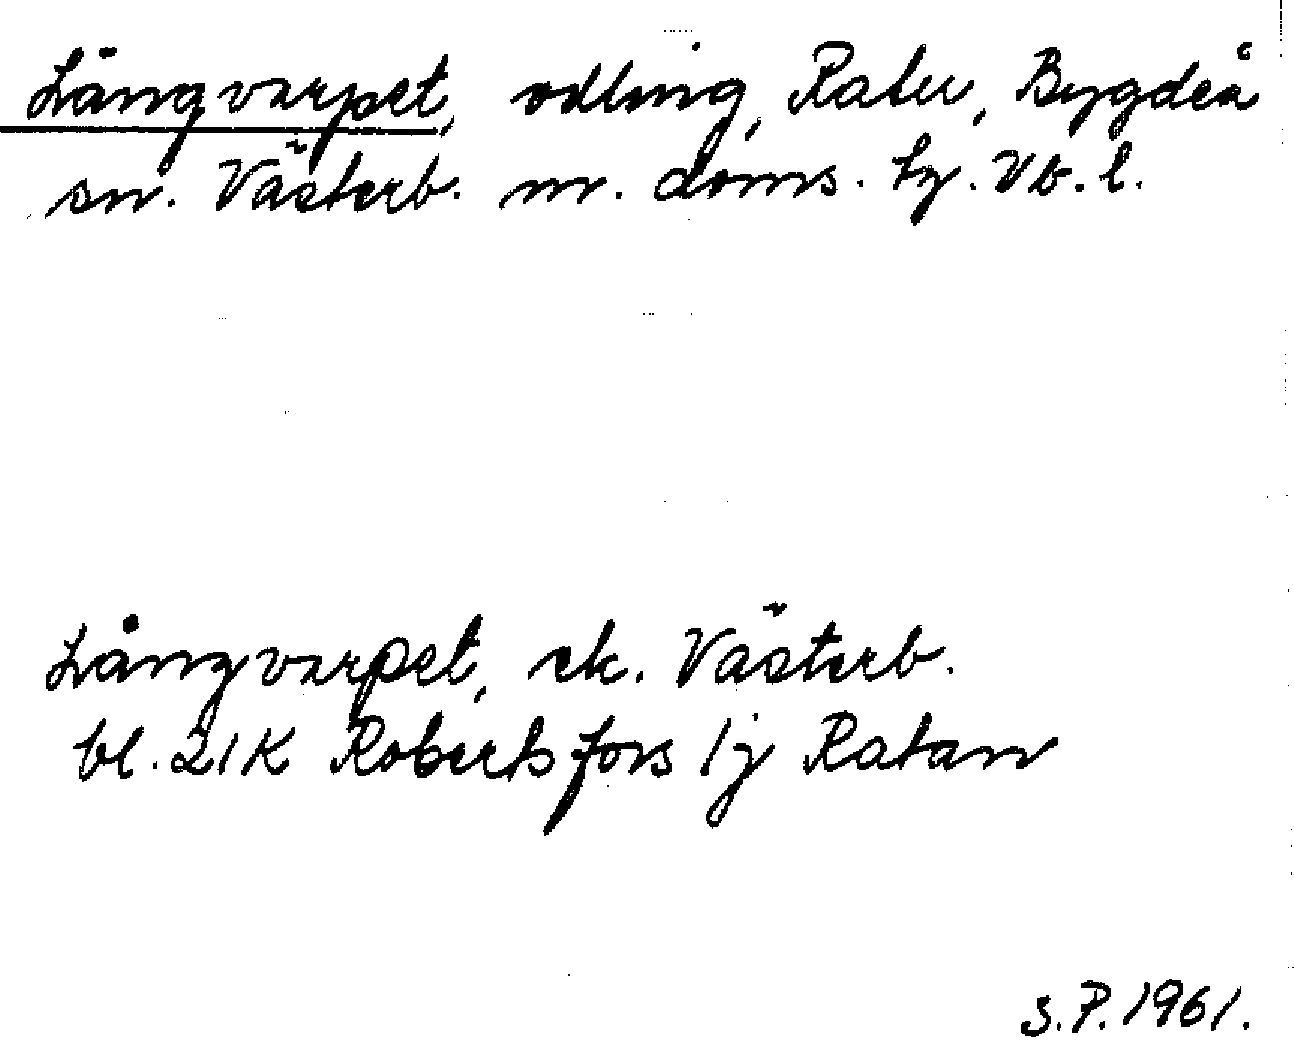 Långvarpet, odling, Ratu, Bygdeå
sn. Västerb. m. doms. tg. Vb. l.
Långvarpet, ek. Västerb.
bl. 21K Robertsfors 1j Ratan
S.P. 1961.